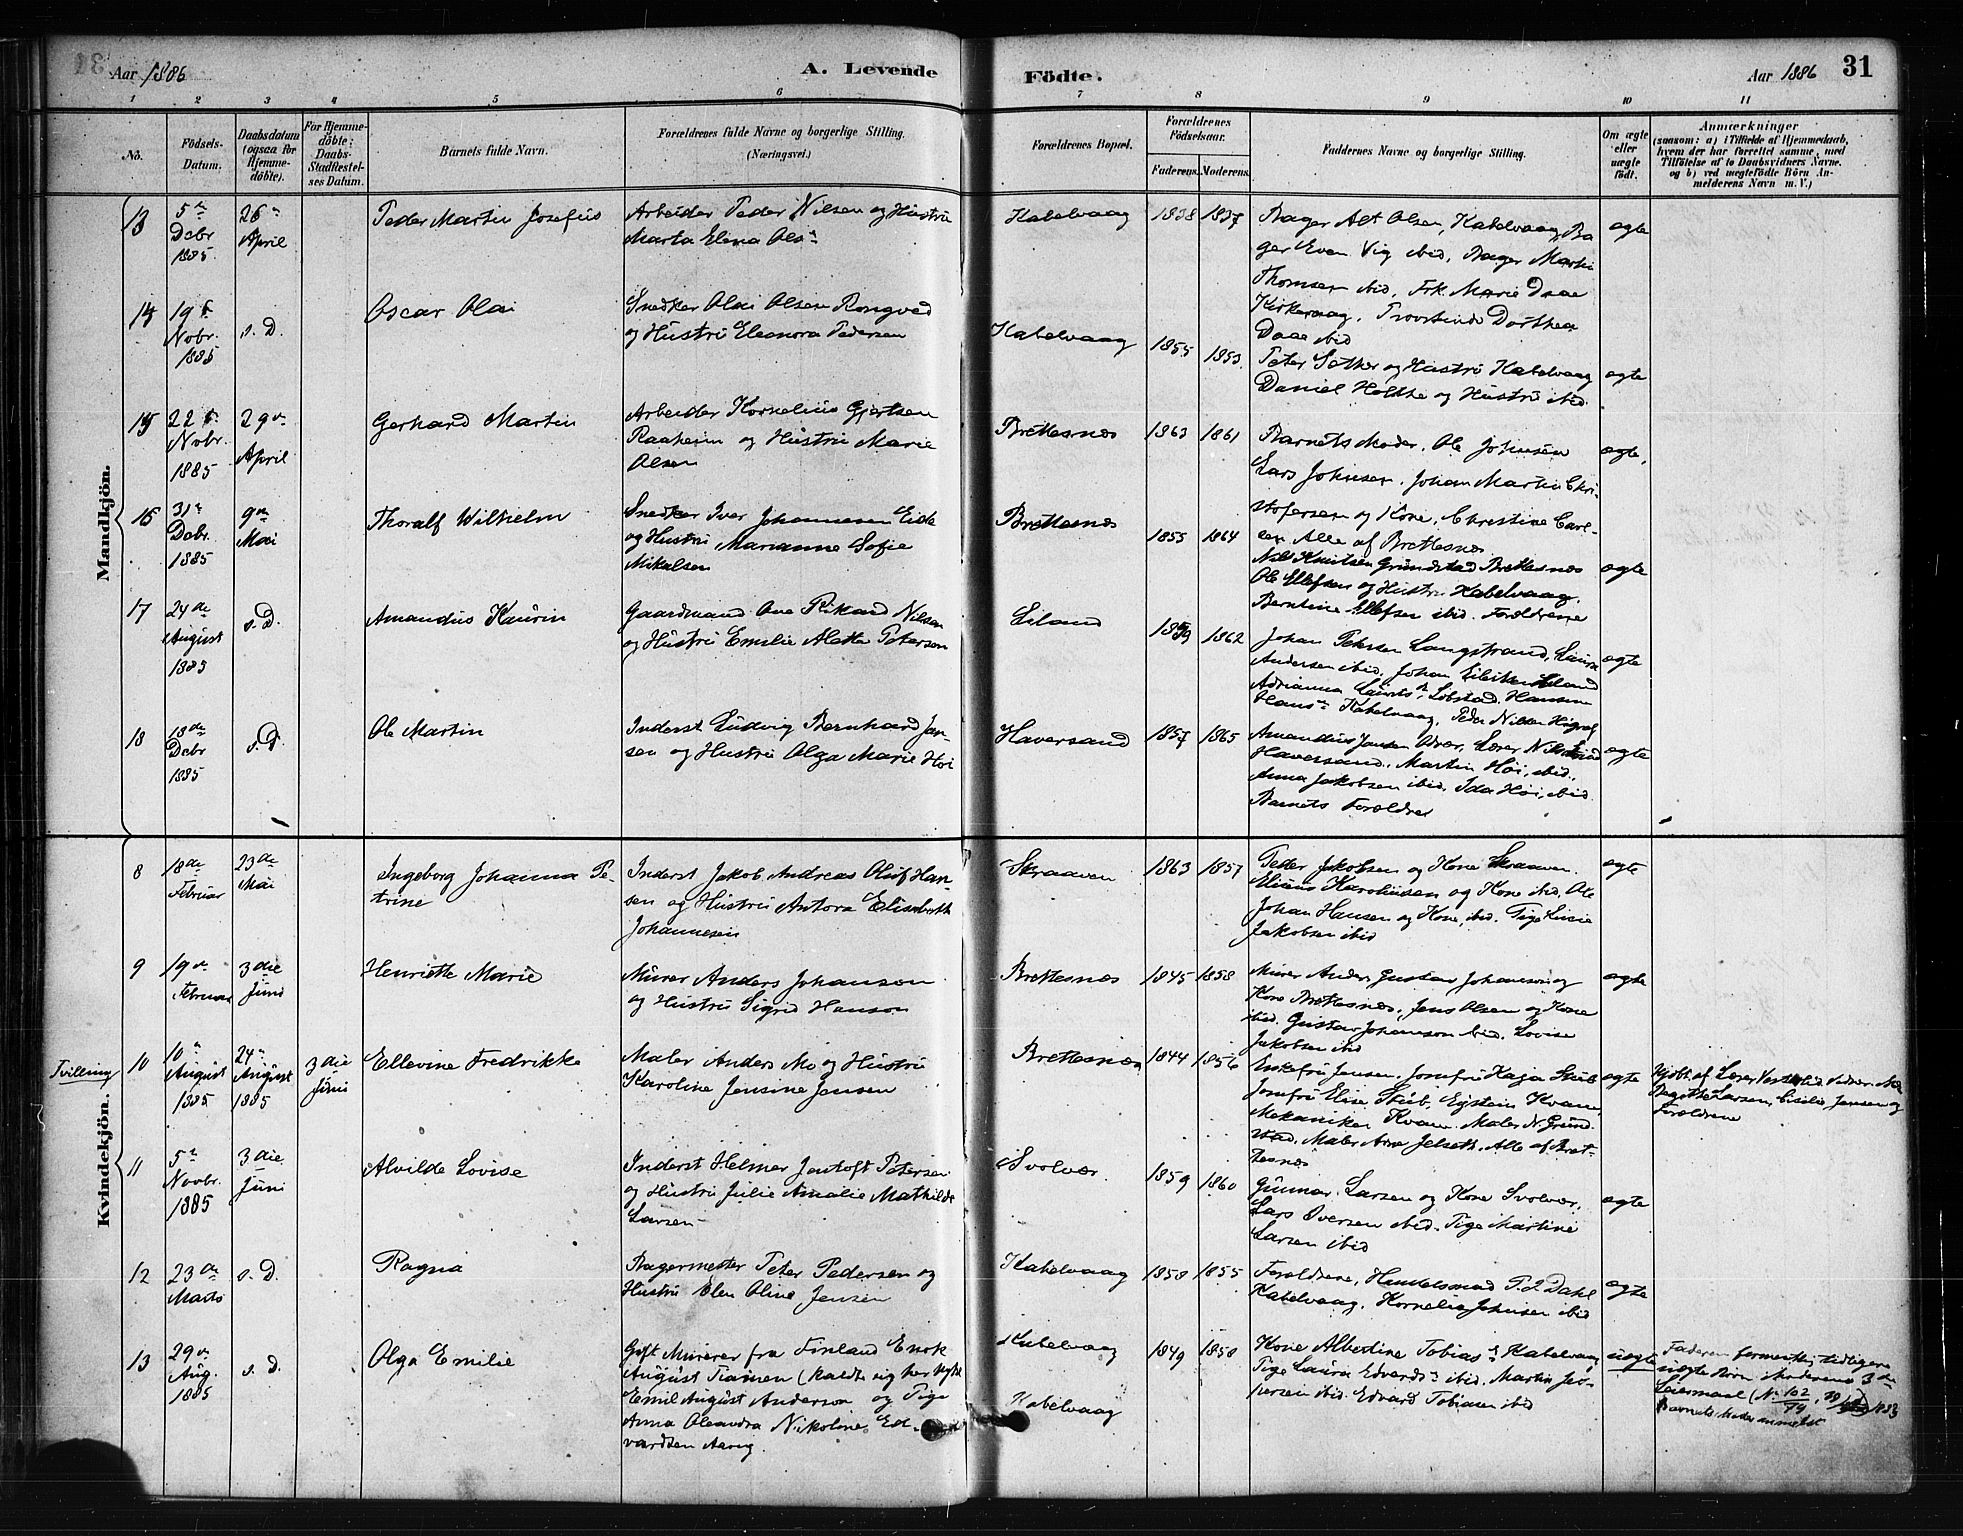 Aar 1886
A. Levende Födte.
Aar 1886
31
1 2 3 4 5 6 7 8 9 10 11
No.
Födsels-
Datum.
Daabsdatum
(ogsaa for
Hjemme-
döbte).
For Hjemme-
döbte:
Daabs-
Stadfæstel-
ses Datum.
Barnets fulde Navn.
Forældrenes fulde Navne og borgerlige Stilling.
(Næringsvei.)
Forældrenes Bopæl.
Forældrenes
Födselsaar.
Faderens. Moderens.
Faddernes Navne og borgerlige Stilling.
Om ægte
eller
uægte
födt.
Anmærkninger
(saasom: a) i Tilfælde af Hjemmedaab,
hvem der har forrettet samme, med
Tilföielse af to Daabsvidners Navne.
og b) ved uægtefödte Börn An-
melderens Navn m. V.)
Mandkjön.
13
5te
Decbr
1885.
26de
April
Peder Martin Josefus
Arbeider Peder Nilsen og Hustru
Marta Elina Ols
Kabelvaag
1838 1837
Bager Alt Olsen, Kabelvaag, Ba
ger Even Vig ibid, Bager Martin
Thomsen ibid, Frk. Marie Daae
Kirkevaag, Provstinde Dorthea
Daae ibid
ægte
14
19de
Nobr.
1885
s. D.
Oscar Olai
Snedker Olai Olsen Rongved
og Hustru Eleonora Pedersen
Kabelvaag
1855 1853
Peter Sother og Hustru Kabelvaag
Daniel Holthe og Hustru ibid.
ægte
15
22de
Nobr.
1885
29de
April
Gerhard Martin
Arbeider Kornelius Gjertsen
Raaheim og Hustru Marie
Olsen
Brettesnæs
1863 1861
Barnets Moder. Ole Johnsen
Lars Johnsen. Johan Martin Chri-
stofersen og Kone, Christine Carl-
sen Alle af Brettesnæs
ægte
16
31te
Decbr.
1885
9de
Mai
Thoralf Wilhelm
Snedker Iver Johannesen Eide
og Hustru Marianne Sofie
Mikalsen
Brettesnæs
1855 1864
Nils Knutsen Grundstad Brettesnæs
Ole Ellefsen og Hustru Kabelvaag,
Berntine Ellefsen ibid. Forældrene
ægte
17
24de
August
1885
s. D.
Amandus Kaurin
Gaardmand Ove Rikard Nilsen
og Hustru Emilie Aletta Petersen
Eiland
1859 1862
Johan Petersen Langstrand, Laura
Andersen ibid. Johan Eilertsen Eiland
Adrianna Laurits Lobstad. Hansine
Hans Kabelvaag, Peder Nilsen
ægte
18
18de
Decbr
1885
s. D.
Ole Martin
Inderst Ludvig Bernhard Jan-
sen og Hustru Olga Marie Høi
Haversand
1857 1865
Amandus Jansen Lærer Nils
Haversand. Martin Høi, ibid.
Anna Jakobsen ibid, Ida Høi, ibid.
Barnets Forældre
ægte
Kvindekjön.
8
18de
Februar
23de
Mai
Ingeborg Johanna Pe-
trine
Inderst Jakob Andreas Oluf Han-
sen og Hustru Antora Elisabeth
Johannesen
Skraaven
1863 1857
Peder Jakobsen og Kone Skraaven.
Elias Karoliusen og Kone ibid. Ole
Johan Hansen og Kone, ibid. Pige Lucie
Jakobsen ibid
ægte
9
19de
Februar
3die
Juni
Henriette Marie
Murer Anders Johanson
og Hustru Sigrid Hanson
Brettesnæs
1845 1858
Murer Anders Gustav Johanson og
Kone Brettesnæs, Jens Olsen og Kone
ibid. Gustav Johanson ibid. Lovise
Jakobsen ibid
ægte
Tvilling
10
10de
August
1885
24de
August
1885
3die
Juni
Ellevine Fredrikke
Maler Anders Mo og Hustru
Karoline Jensine Jensen
Brettesnæs
1844 1856
Enkefru Jensen, Jomfru Kaja Skub
Jomfru Elise Skub, Egstein Kvam,
Mekaniker Kvam. Maler N. Grund-
stad. Maler Arne Jelseth. Alle af Bret-
tesnæs
ægte
Hjdbt. af Lærer
Larsen, Cecilie Jansen og
Forældrene
11
5te
Novbr.
1885
3die
Juni
Alvilde Lovise
Inderst Helmer Jentoft Petersen
og Hustru Julie Amalie Mathilde
Larsen
Svolvær
1859 1860
Gunnar Larsen og Kone Svolvær,
Lars Oversen ibid. Pige Martine
Larsen ibid
ægte
12
23de
Marts
s. D.
Ragna
Bagermester Peter Pedersen og
Hustru Elen Oline Jensen
Kabelvaag
1858 1855
Forældrene, Handelsmand P. J. Dahl
Kabelvaag, Kornelia Johnsen ibid
ægte
13
29de
Aug.
1885
s. D.
Olga Emilie
Gift Murer fra Finland Enok
August Tiainen (kaldte sig her
Emil August Anderson og Pige
Anna Oleandra Nikoline Ed-
vardsen Aarvg.
Kabelvaag
Kabelvaag
1849 1850
Kone Albertine Tobias Kabelvaag
Pige Laura Edvards ibid. Martin Jes-
persen ibid. Edvard Tobiasen ibid
uægte
Faderen formentlig tidligere
uægte Børn. Moderens 3de
Leiermaal (No 102 1883
Barnets Moder anmeldt